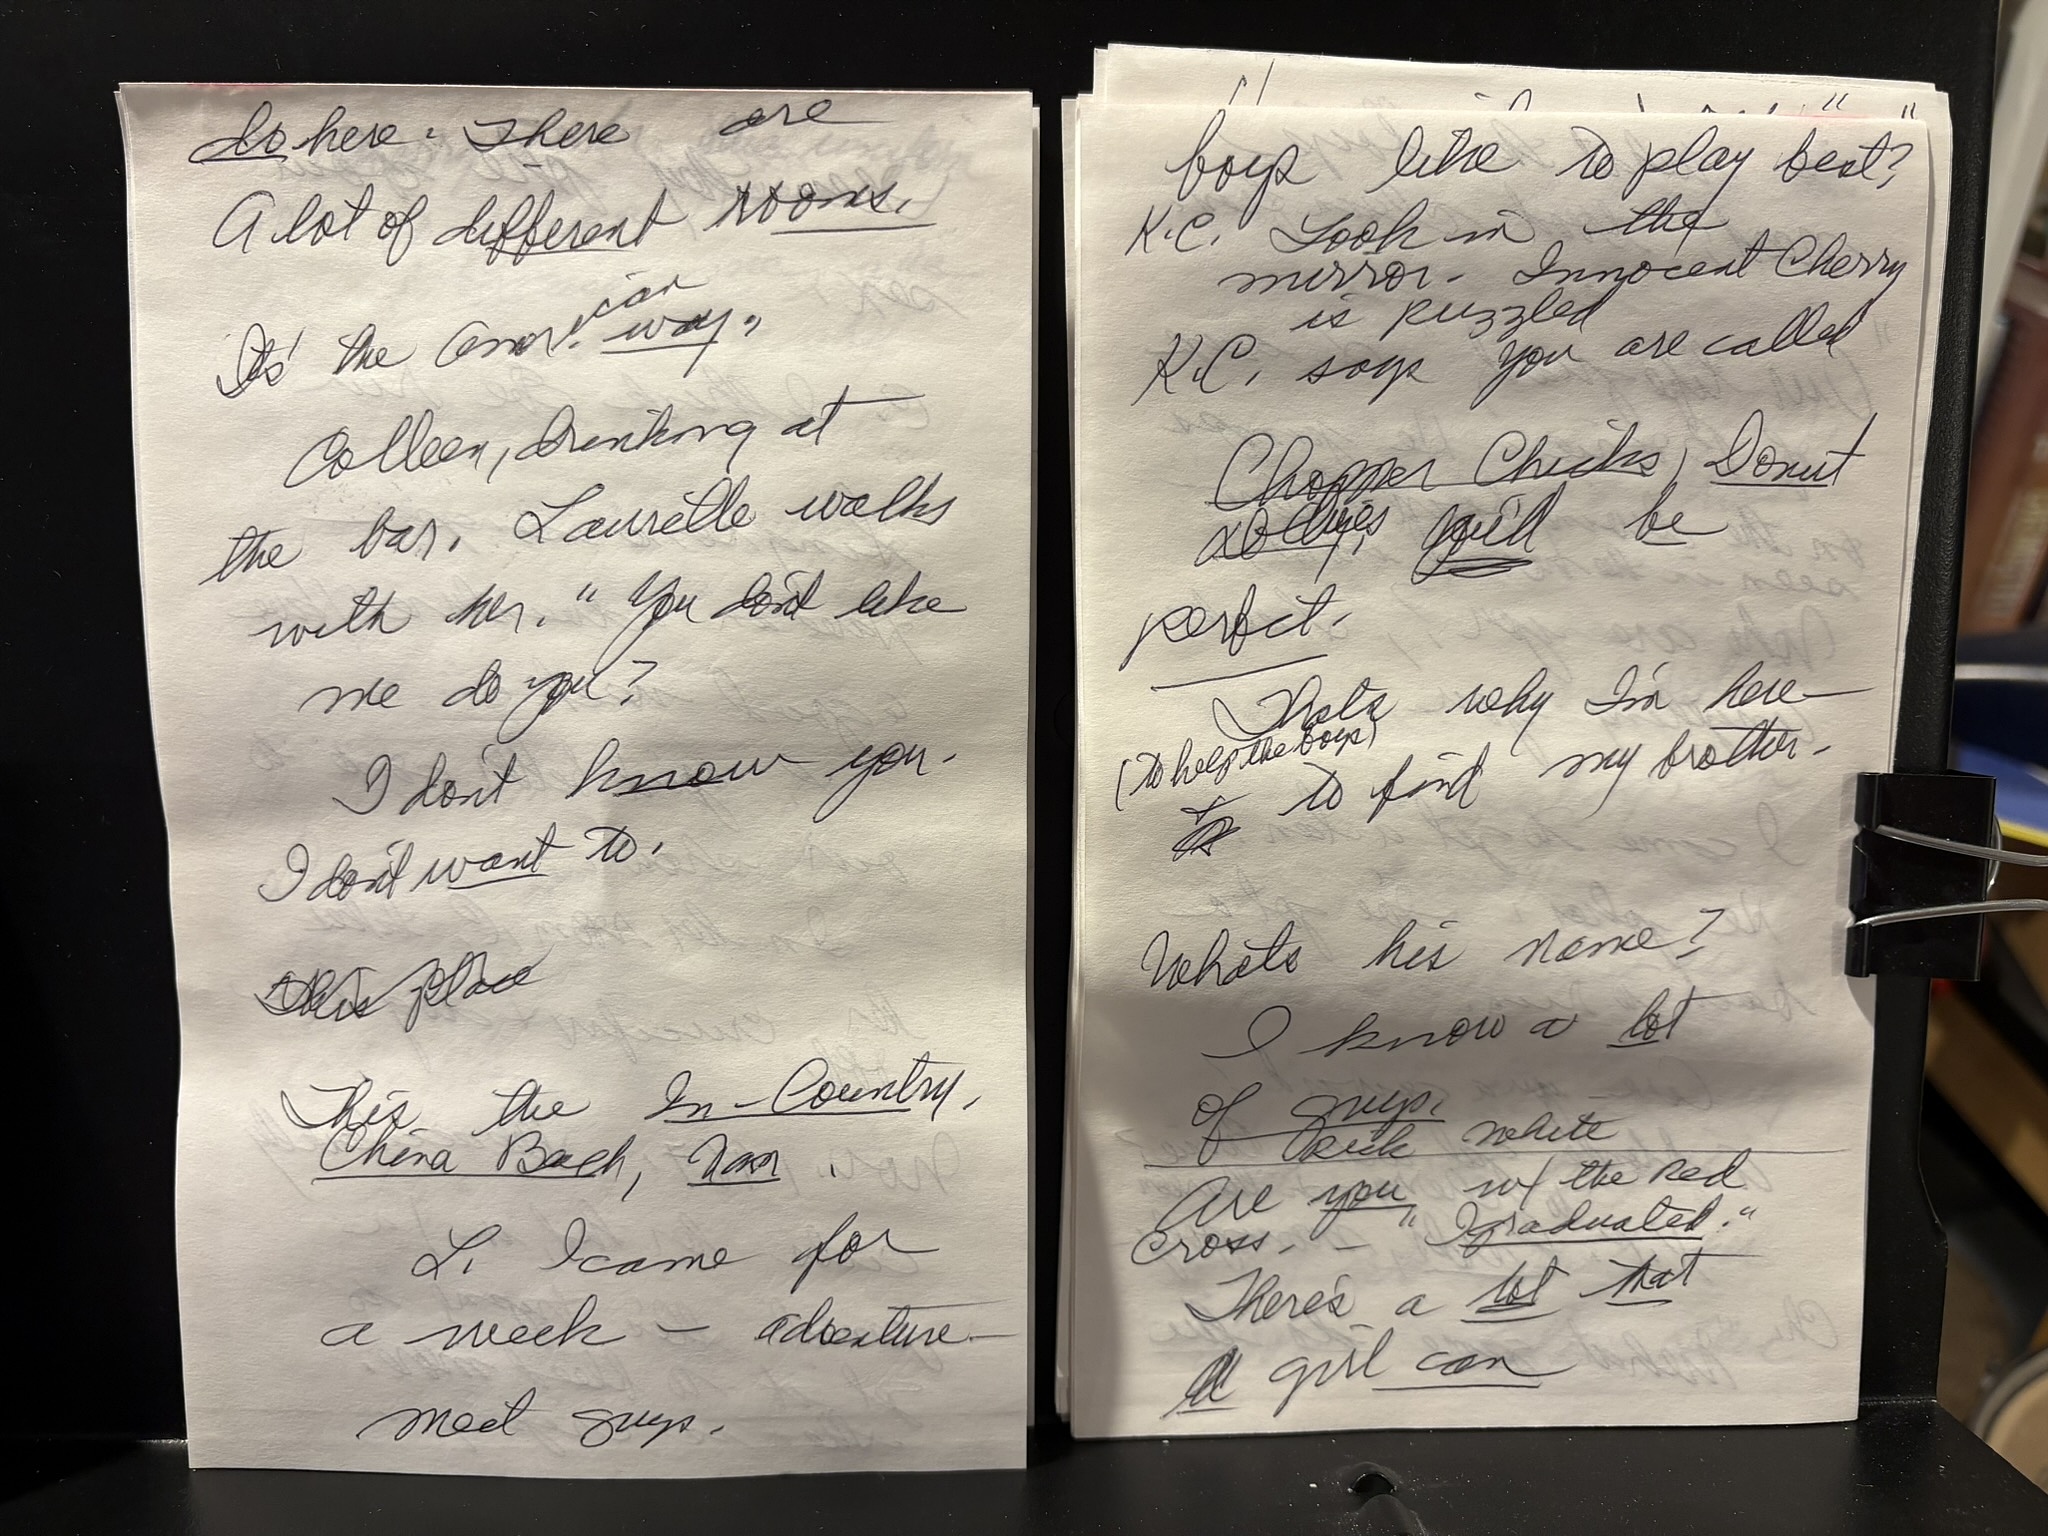 do here. There are
A lot of different rooms.
It's the American way."
Colleen, drinking at
the bar. Laurette walks
with her. "You don't like
me do you?
I don't know you.
I don't want to.
This place
This the In-Country,
China Bach, Nam.
L. I came for
a week - adventure -
meet guys.
boys like to play best?
K.C. Look in the
mirror. Innocent Cherry
is puzzled
K.C. says you are called
Chopper Chicks, Donut
Dollies, you'll be
perfect.
Thats why I'm here -
(to help the boys)
to find my brother.
Whats his name?
I know a lot
of guys.
Rick White
Are you w/ the Red
Cross. - "I graduated."
There's a lot that
A girl can